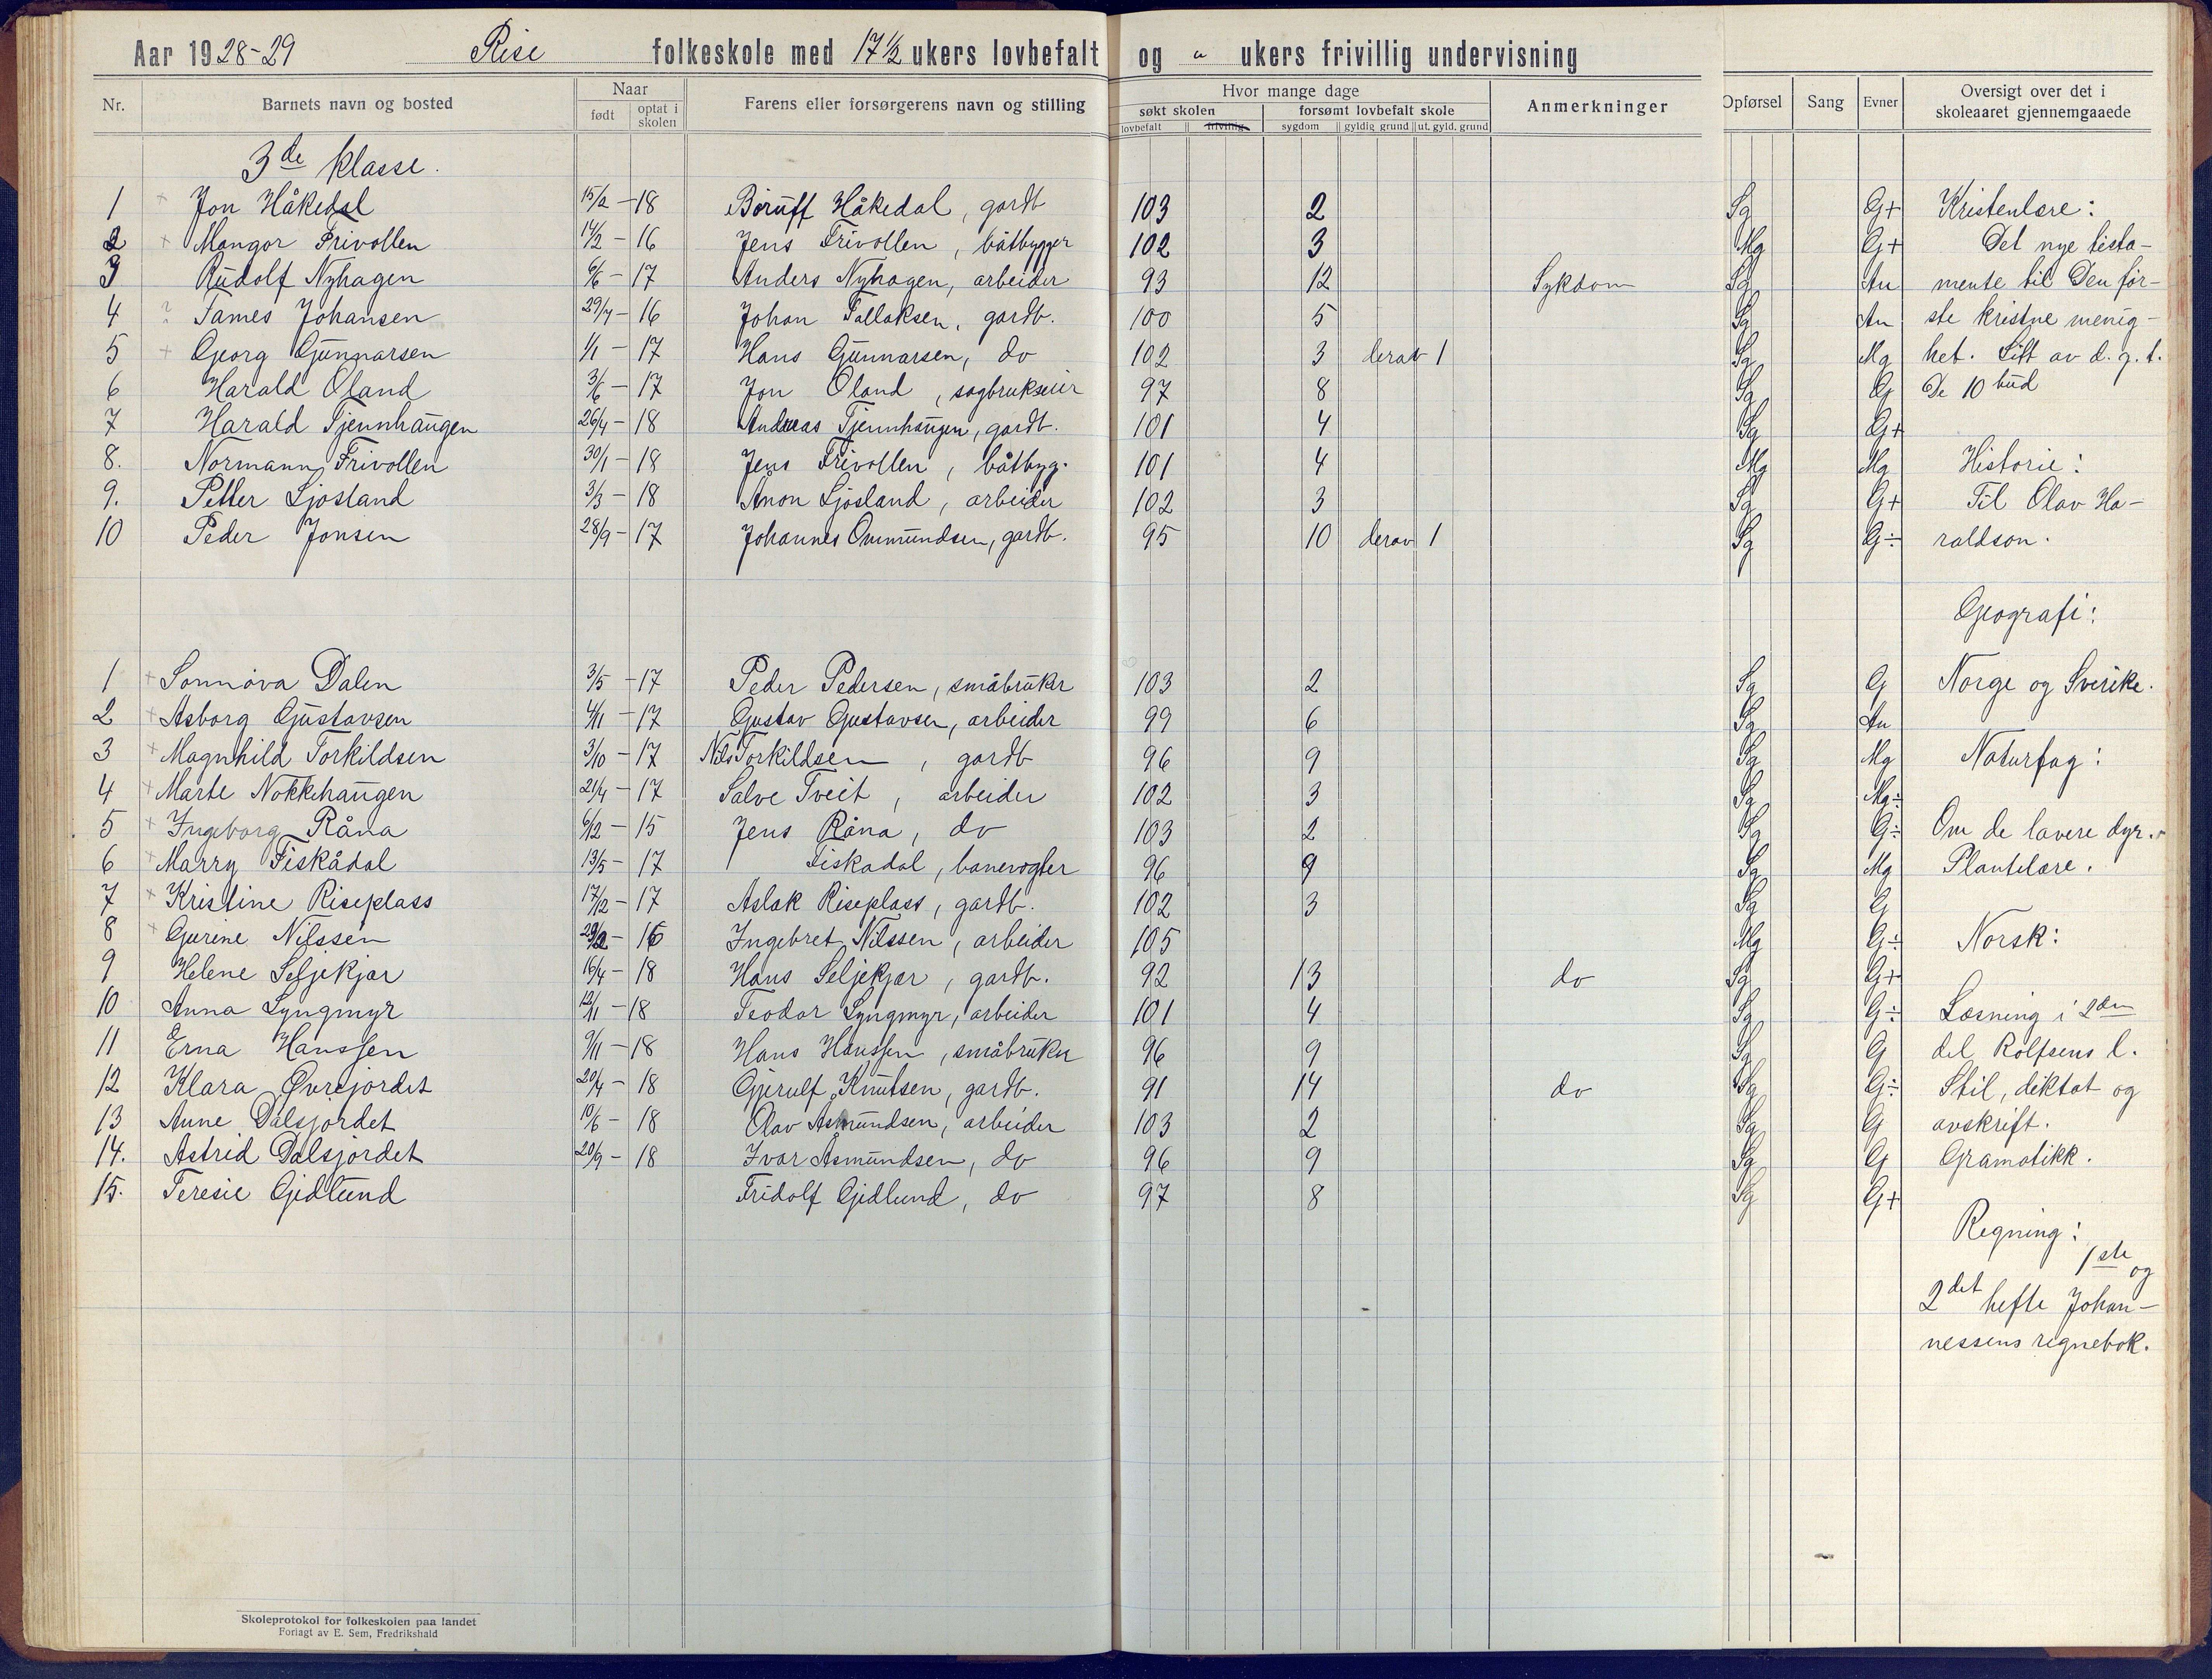 Aar 1928-29 Rise folkeskole med 17 1/2 ukers lovbefalt og " ukers frivillig undervisning
Nr. Barnets navn og bosted Naar født optat i skolen Farens eller forsørgerens navn og stilling Hvor mange dage søkt skolen lovbefalt frivillig forsømt lovbefalt skole sygdom gyldig grund ut. gyld. grund Anmerkninger Opførsel Sang Evner Oversigt over det i skoleaaret gjennemgaaede
3de klasse.
1 + Jon Håkedal 15/2 - 18 Børuff Håkedal, gardb 103 2 Sg G+ Kristenlære:
2 + Mangor Frivollen 14/2 - 16 Jens Frivollen, båtbygger 102 3 Mg G+ Det nye testa-
3 Rudolf Nyhagen 6/6 - 17 Anders Nyhagen, arbeider 93 12 Sykdom Sg An mente til Den før-
4 ? Tames Johansen 29/7 - 16 Johan Tallaksen, gardb. 100 5 Sg An ste kristne menig-
5 + Georg Gunnarsen 1/1 - 17 Hans Gunnarsen, do 102 3 derav 1 Sg Mg het. Litt av d. g. t.
6 Harald Øland 3/6 - 17 Jon Øland, sagbrukseier 97 8 Sg G De 10 bud
7 Harald Tjennhaugen 26/4 - 18 Andreas Tjennhaugen, gardb. 101 4 Sg G+
8. Normann Frivollen 30/1 - 18 Jens Frivollen, båtbyg. 101 4 Mg Mg Historie:
9. Petter Ljøsland 3/3 - 18 Anon Ljøsland, arbeider 102 3 Sg G+ Til Olav Ha-
10 Peder Jonsen 28/9 - 17 Johannes Ommundsen, gardb. 95 10 derav 1 Sg G÷ raldson.
Geografi:
1 + Sonnøva Dalen 3/5 - 17 Peder Pedersen, småbruker 103 2 Sg G Norge og Sverike.
2 + Asborg Gustavsen 4/11 - 17 Gustav Gustavsen, arbeider 99 6 Sg An
3 + Magnhild Torkildsen 3/10 - 17 Nils Torkildsen, gardb 96 9 Sg Mg Naturfag:
4 + Marte Nokkehaugen 21/4 - 17 Salve Tveit, arbeider 102 3 Sg Mg÷
5 + Ingeborg Råna 6/12 - 15 Jens Råna, do 103 2 Sg G÷ Om de lavere dyr.
6 + Marry Fiskådal 13/5 - 17 Fiskadal, banevogter 96 9 Sg Mg Plantelære.
7 + Kristine Riseplass 17/12 - 17 Aslak Riseplass, gardb. 102 3 Sg G
8 + Gurine Nilssen 29/2 - 16 Ingebret Nilssen, arbeider 105 Mg G÷ Norsk:
9 Helene Seljekjær 16/4 - 18 Hans Seljekjær, gardb. 92 13 do Sg G+
10 Anna Lyngmyr 12/1 - 18 Teodor Lyngmyr, arbeider 101 4 Sg G÷ Læsning i 2den
11 Erna Hanssen 9/11 - 18 Hans Hanssen, småbruker 96 9 Sg G del Rolfsens l.
12 Klara Øvrejordet 20/4 - 18 Gjerulf Knutsen, gardb. 91 14 do Sg G÷ Stil, diktat og
13 Anne Dalsjordet 10/6 - 18 Olav Asmundsen, arbeider 103 2 Sg G avskrift.
14. Astrid Dalsjordet 20/9 - 18 Ivar Asmundsen, do 96 9 Sg G Gramatikk.
15. Teresie Gjedlund Fridolf Gjedlund, do 97 8 Sg G+
Regning:
1ste og
2det hefte Johan-
nessens regnebok.
Skoleprotokol for folkeskolen paa landet
Forlagt av E. Sem, Fredrikshald